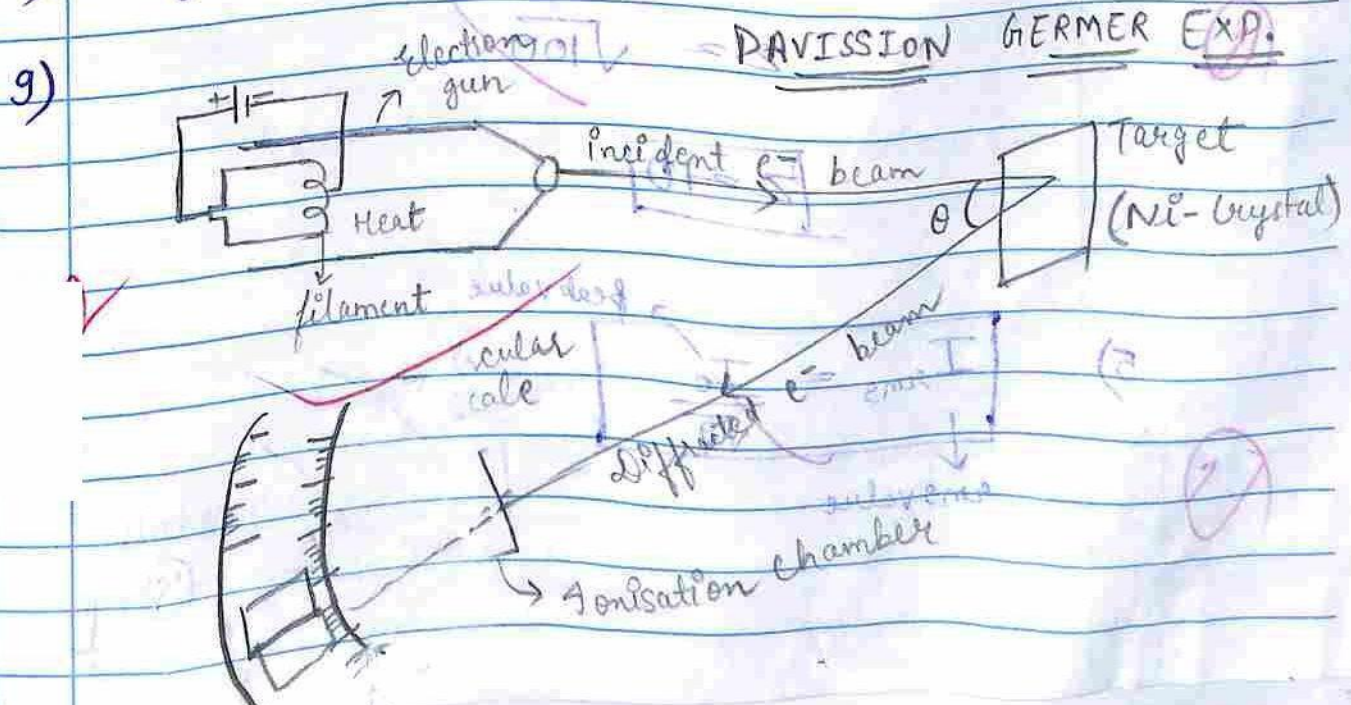 DAVISSION GERMER EXP.
9)
Election
gun
+ -
incident e- beam
Target
(Ni-Crystal)
θ
Heat
filament
cular
cale
Diffracted e- beam
Ionisation chamber